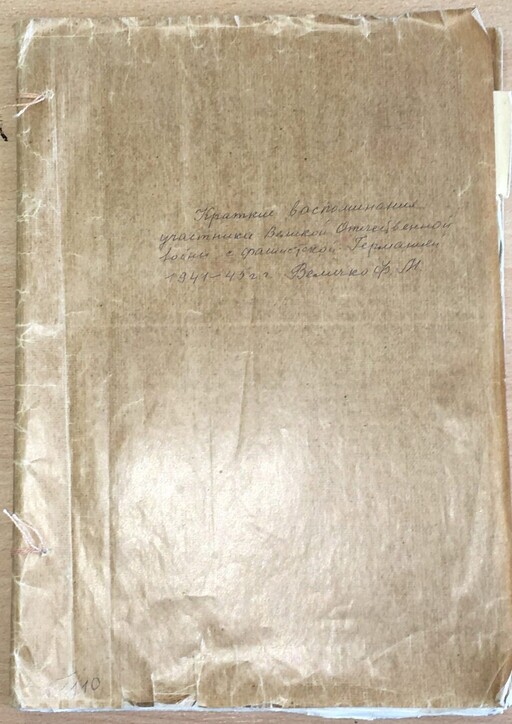 Краткие воспоминания
участника Великой Отечественной
войны с фашистской Германией
1941-45 гг. Величко Ф. И.
110